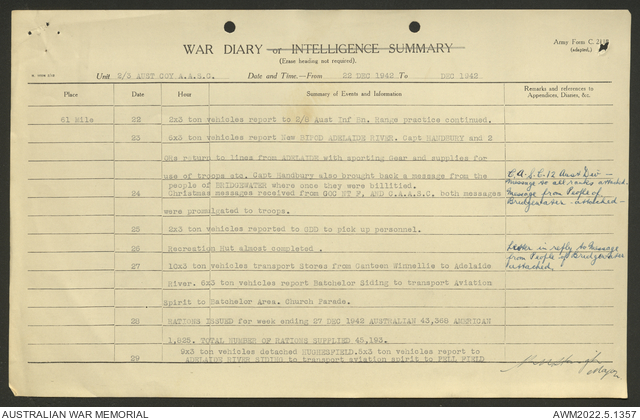 WAR DIARY or INTELLIGENCE SUMMARY
(Erase heading not required).
Army Form C. 2118
(adapted.)
Unit 2/3 AUST COY A.A.S.C. Date and Time.—From 22 DEC 1942 To DEC 1942
Place Date Hour Summary of Events and Information Remarks and references to Appendices, Diaries, &c.
61 Mile 22 2x3 ton vehicles report to 2/8 Aust Inf Bn. Range practice continued.
23 6x3 ton vehicles report New BIPOD ADELAIDE RIVER. Capt HANDBURY and 2
ORs return to lines from ADELAIDE with sporting Gear and supplies for
use of troops etc. Capt Handbury also brought back a message from the
people of BRIDGEWATER where once they were billitied.
24 Christmas messages received from GOC NT F, AND C.A.A.S.C. both messages
were promulgated to troops.
C.A.S.C. 12 Aust Div —
Message to all ranks attached.
Message from People of
Bridgewater - attached -
25 2x3 ton vehicles reported to GDD to pick up personnel.
26 Recreation Hut almost completed .
Letter in reply to Message
from People of Bridgewater
attached
27 10x3 ton vehicles transport Stores from Canteen Winnellie to Adelaide
River. 6x3 ton vehicles report Batchelor Siding to transport Aviation
Spirit to Batchelor Area. Church Parade.
28 RATIONS ISSUED for week ending 27 DEC 1942 AUSTRALIAN 43,368 AMERICAN
1,825. TOTAL NUMBER OF RATIONS SUPPLIED 45,193.
9x3 ton vehicles detached HUGHESFIELD. 5x3 ton vehicles report to
29 ADELAIDE RIVER SIDING to transport aviation spirit to FELL FIELD
Major
AUSTRALIAN WAR MEMORIAL
AWM2022.5.1357